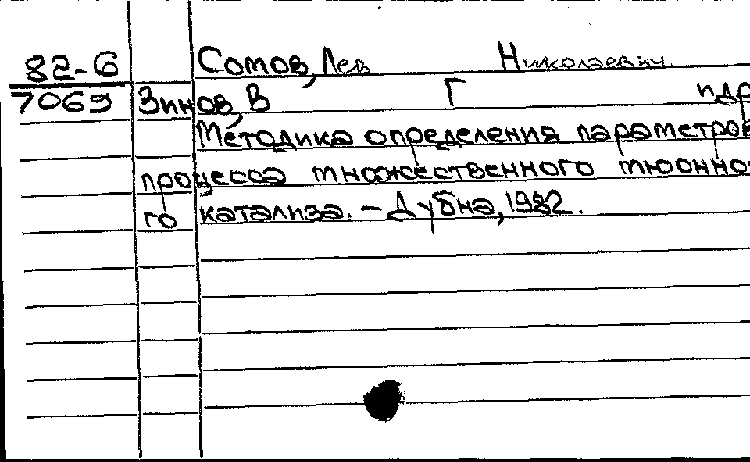 82-6 Сомов, Лев Николаевич.
7069 Зинов, В Г и др
Методика определения параметров
процесса множественного мюонно
го катализа. – Дубна, 1982.